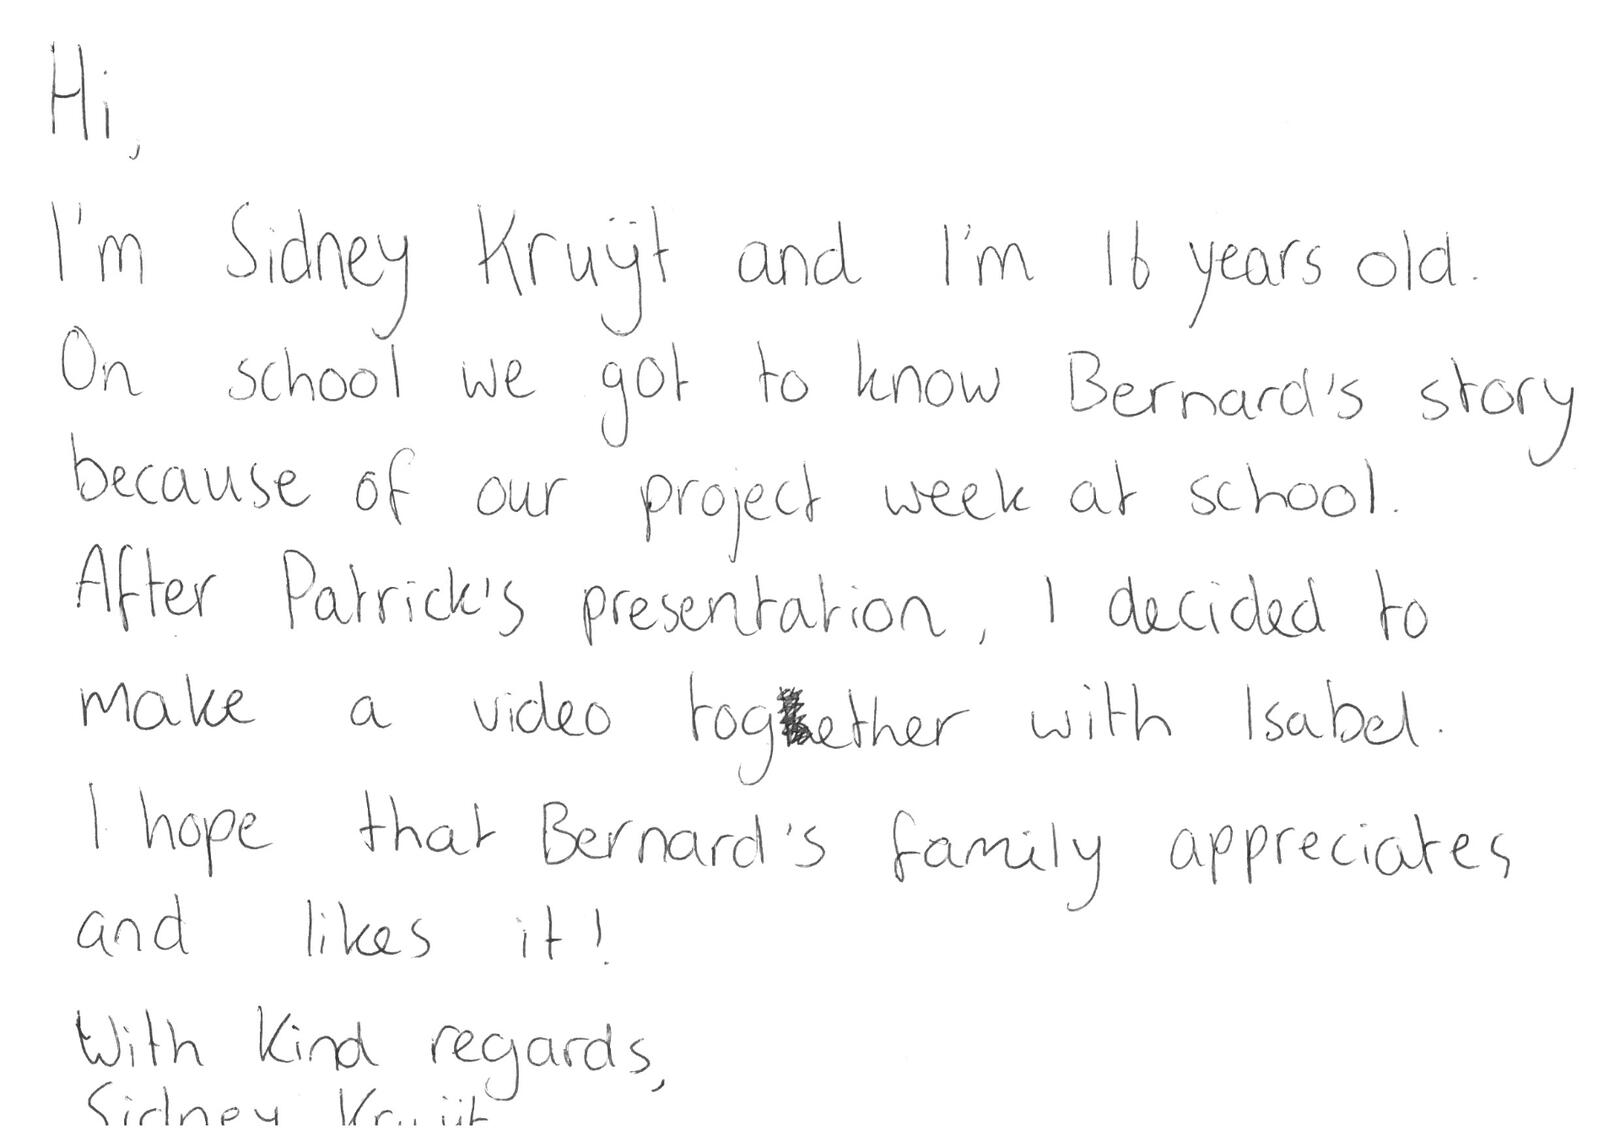 Hi,
I'm Sidney Kruijt and I'm 16 years old.
On school we got to know Bernard's story
because of our project week at school.
After Patrick's presentation, I decided to
make a video together with Isabel.
I hope that Bernard's family appreciates
and likes it!
With Kind regards,
Sidney Kruijt